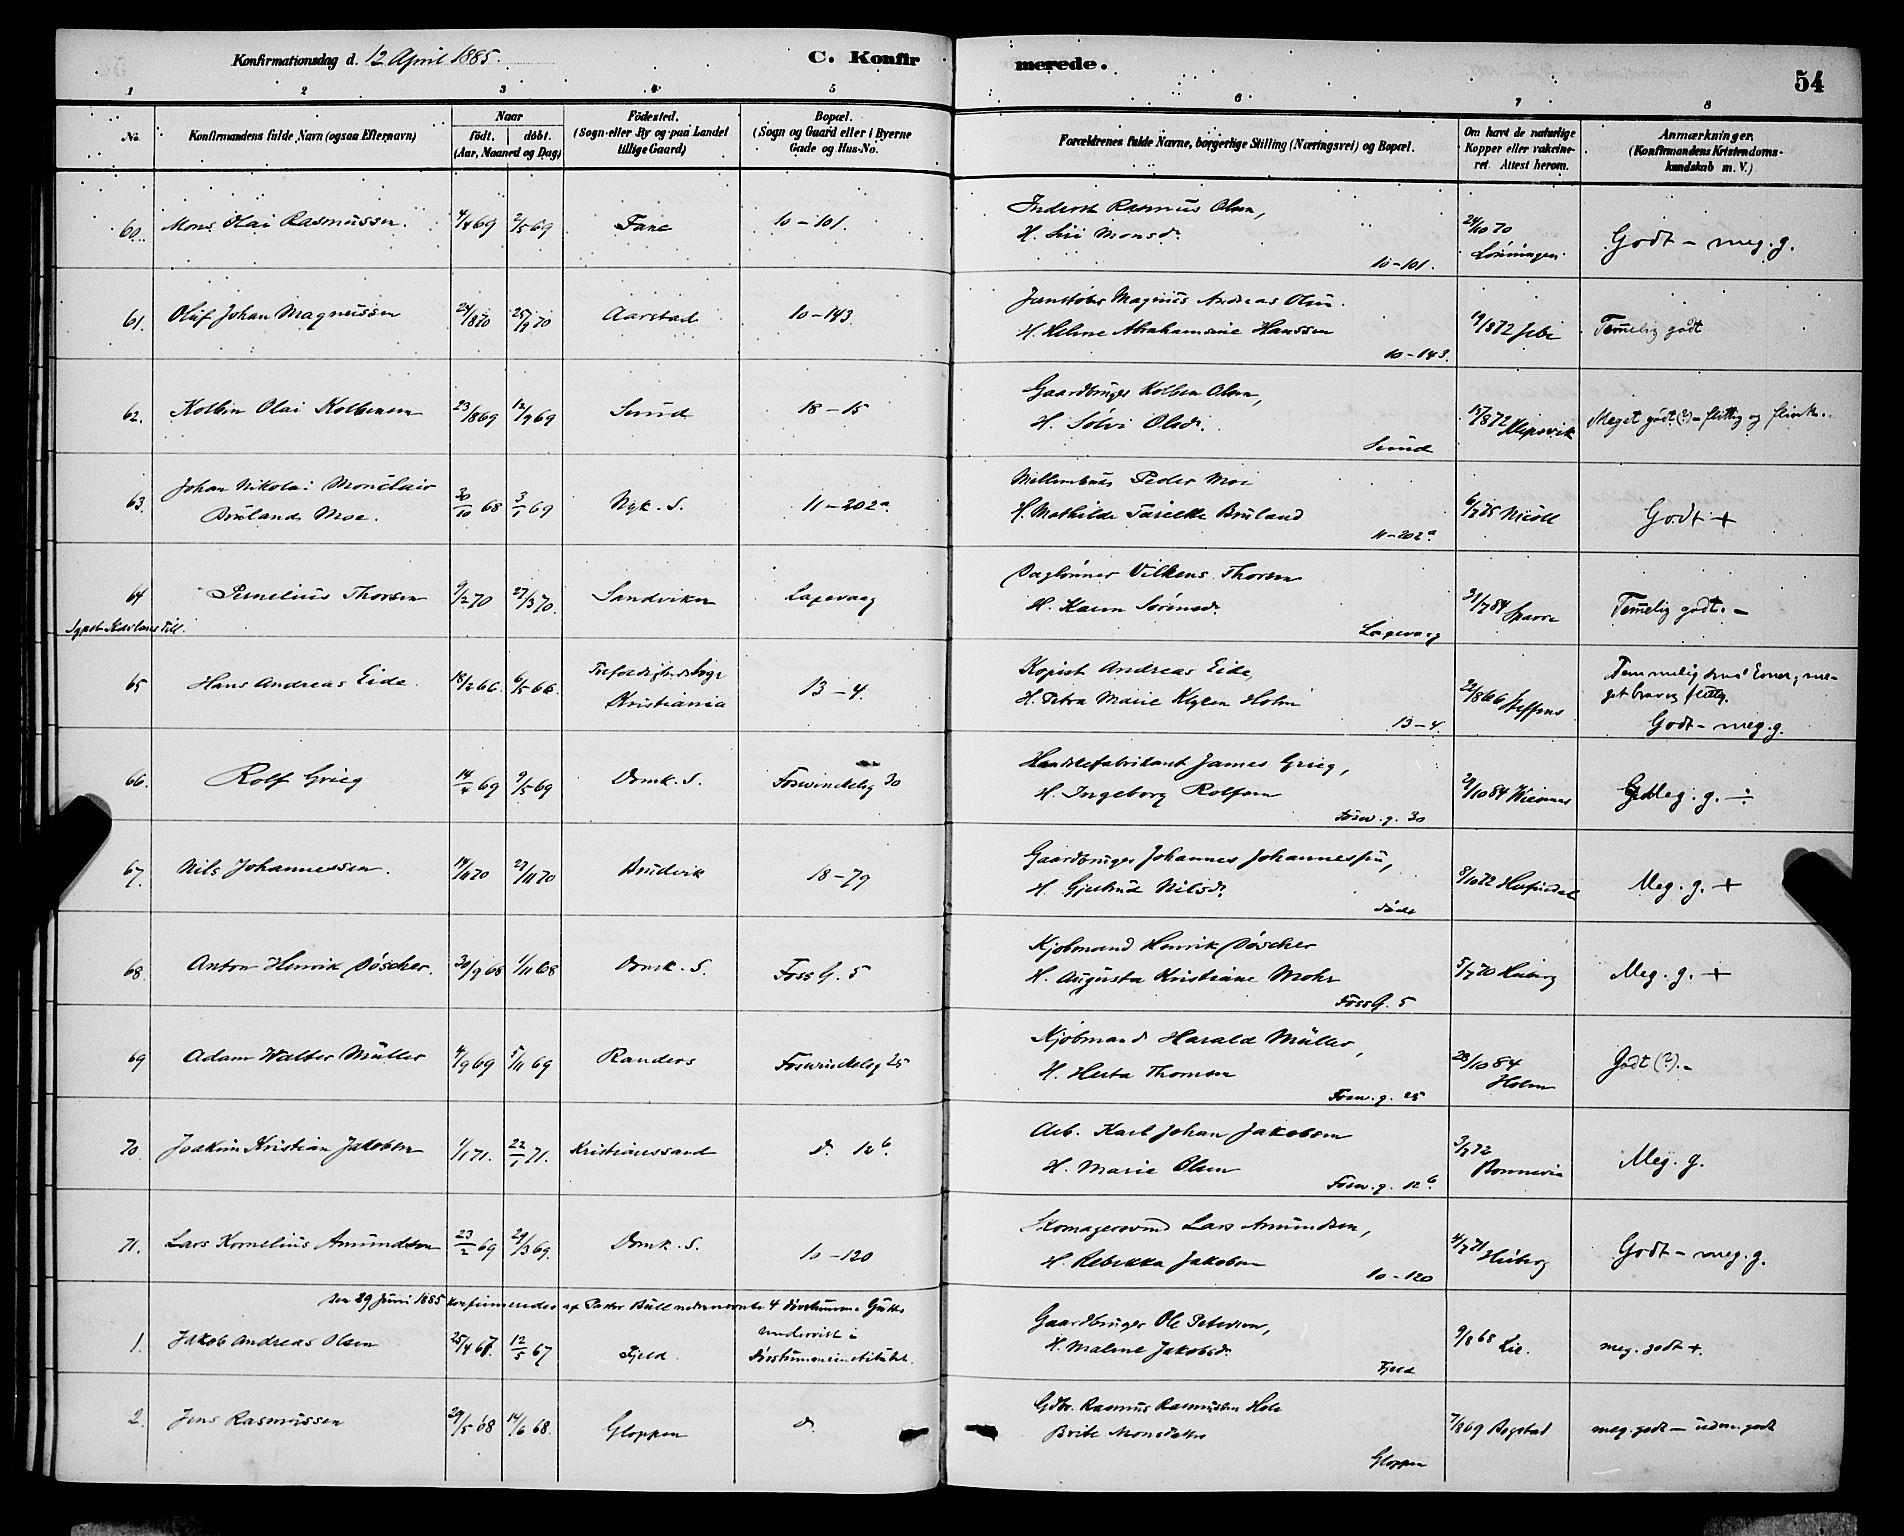 Konfirmationsdag d. 12 April 1885. C. Konfirmerede. 54
1 2 3 4 5 6 7 8
No. Konfirmandens fulde Navn (ogsaa Efternavn) Naar født. døbt. (Aar, Maaned og Dag) Fødested. (Sogn eller By og paa Landet tillige Gaard) Bopæl. (Sogn og Gaard eller i Byerne Gade og Hus-No. Forældrenes fulde Navne, borgerlige Stilling (Næringsvei) og Bopæl. Om havt de naturlige Kopper eller vakcineret. Attest herom. Anmærkninger. (Konfirmandens Kristendomskundskab m. V.)
60. Mons Olai Rasmussen. 7/4 69 2/5 69 Fane 10-101. Inderst Rasmus Olsen,
H. Siri Monsdr. 10-101. 24/10 70 Godt - meg. g.
61. Oluf Johan Magnussen 24/8 70 25/9 70 Aarstad 10-143. Jernstøber Magnus Andreas Olsen.
H. Helene Abrahamine Hanssen 10-143. 19/8 72 Temelig godt
62. Kolben Olai Kolbensen 23/8 69 12/9 69 Sund 18-15 Gaardbruger Kolben Olsen,
H. Sølvi Olsdr. Sund 15/8 72 Klepsvik Meget godt (?) - flittig og flink.
63. Johan Nikolai Monclair
Bruland Moe. 30/10 68 3/1 69 Nyk. S. 11-202a Peder Moe
H. Mathilde Bruland 11-202a 6/7 75 Nicoll Godt +
64 Pernelius Thorsen 9/2 70 27/3 70. Sandviken Laxevaag Daglønner Vilkens Thorsen
H. Karen Sørensdr. Laxevaag 31/7 84 Sparre Temelig godt. -
65 Hans Andreas Eide. 18/2 66. 6/5 66. Trefoldighedskirke
Kristiania 13-4. Kopist Andreas Eide,
H. Petra Marie Holm 13-4. 22/8 66 Steffens Temmelig smaa Evner, meget brav og flittig.
Godt - meg. g.
66. Rolf Grieg 14/4 69 9/5 69 Domk. S. Foswinckelsg 30 fabrikant James Grieg,
H. Ingeborg Rolfsen Fosw. g. 30 2/10 84 Wiesener Meg. g. ÷
67. Nils Johannessen. 14/11 70 27/11 70 Bruvik 18-79 Gaardbruger Johannes Johannessen,
H. Gjertrud Nilsdr. døde 8/10 72 Meg. g. +
68. Anton Henrik Döscher. 30/9 68 1/11 68 Domk. S. Foss G. 5 Kjøbmand Henrik Döscher
H. Augusta Kristiane Mohr Foss G. 5 5/7 70 Heiberg Meg. g. +
69 Adam Walter Müller 4/9 69 5/11 69 Randers Foswinckelsg 25 Kjøbmand Harald Müller,
H. Herta Thomsen Fosw. g. 25 28/10 84
Holm Godt (?). -
70. Joakim Kristian Jakobsen 1/1 71. 22/1 71. Kristianssand do. 12b. Arb. Karl Johan Jakobsen
H. Marie Olsen Fosw. g. 12b. 3/7 72
Bonnevie Meg. g.
71. Lars Kornelius Amundsen 23/2 69 29/3 69. Domk. S. 10-120 Skomagersvend Lars Amundsen,
H. Rebekka Jakobsen 10-120 4/7 71 Heiberg Godt - meg. g.
Den 29 Juni 1885 konfirmeredes af Pastor Bull nedennævnte 4 døvstumme Gutter
undervist i
1. Jakob Andreas Olsen 25/4 67. 12/5 67 Fjeld. Døvstummeinstitutet. Gaardbruger Ole Petersen,
H. Malene Jakobsdr. Fjeld 9/8 68 Lie. meg. godt +.
2. Jens Rasmussen 29/5 68 14/6 68. Gloppen do. Gdbr. Rasmus Rasmussen
Brite Monsdatter Gloppen 7/8 69 Bogstad meg. godt - udm. godt